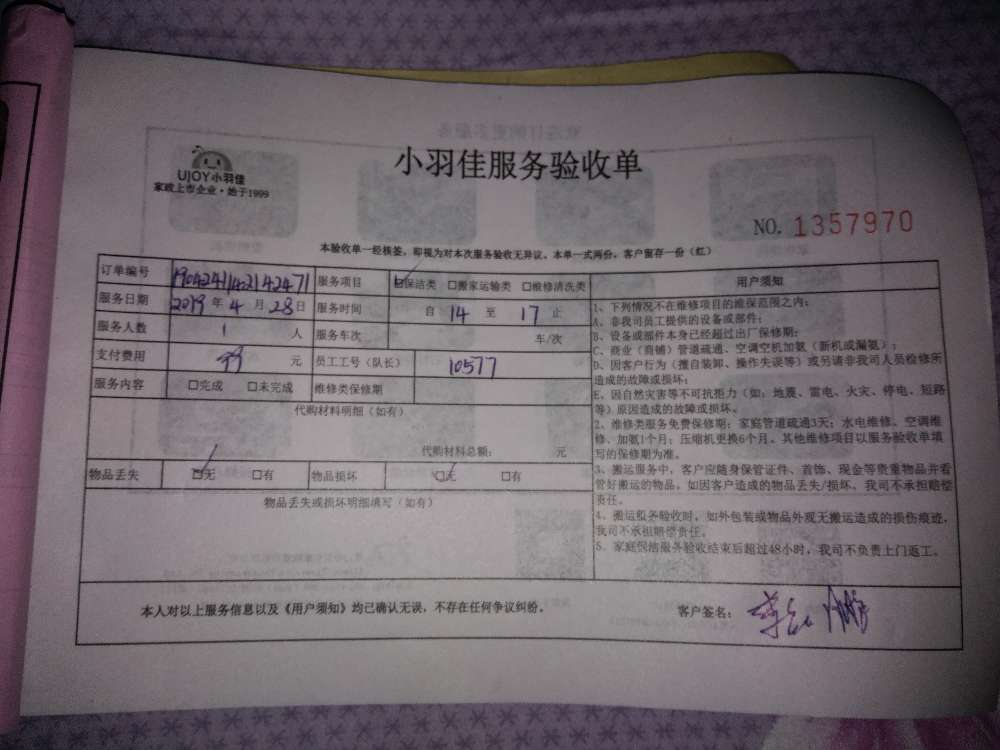 UJOY小羽佳
家政上市企业·始于1999
小羽佳服务验收单
NO. 1357970
本验收单一经核签,即视为对本次服务验收无异议。本单一式两份,客户留存一份(红)
订单编号 服务项目 □保洁类 □搬家运输类 □维修清洗类
服务日期 2019 年 4 月 28 日 服务时间 自 14 至 17 止
服务人数 1 人 服务车次 车/次
支付费用 99 元 员工工号(队长) 10577
服务内容 □完成 □未完成 维修类保修期
代购材料明细(如有)
代购材料总额: 元
物品丢失 □无 □有 物品损坏 □无 □有
物品丢失或损坏明细填写(如有)
用户须知
1、下列情况不在维修项目的维保范围之内:
A、非我司员工提供的设备或部件;
B、设备或部件本身已经超过出厂保修期;
C、商业(商铺)管道疏通、空调空机加氨(新机或漏氨);
D、因客户行为(擅自装卸、操作失误等)或另请非我司人员检修所
造成的故障或损坏;
E、因自然灾害等不可抗拒力(如:地震、雷电、火灾、停电、短路
等)原因造成的故障或损坏。
2、维修类服务免费保修期:家庭管道疏通3天;水电维修、空调维
修、加氨1个月;压缩机更换6个月。其他维修项目以服务验收单填
写的保修期为准。
3、搬运服务中,客户应随身保管证件、首饰、现金等贵重物品并看
管好搬运的物品,如因客户造成的物品丢失/损坏、我司不承担赔偿
责任。
4、搬运服务验收时,如外包装或物品外观无搬运造成的损伤痕迹,
我司不承担赔偿责任。
5、家庭保洁服务验收结束后超过48小时,我司不负责上门返工。
本人对以上服务信息以及《用户须知》均已确认无误,不存在任何争议纠纷。
客户签名: